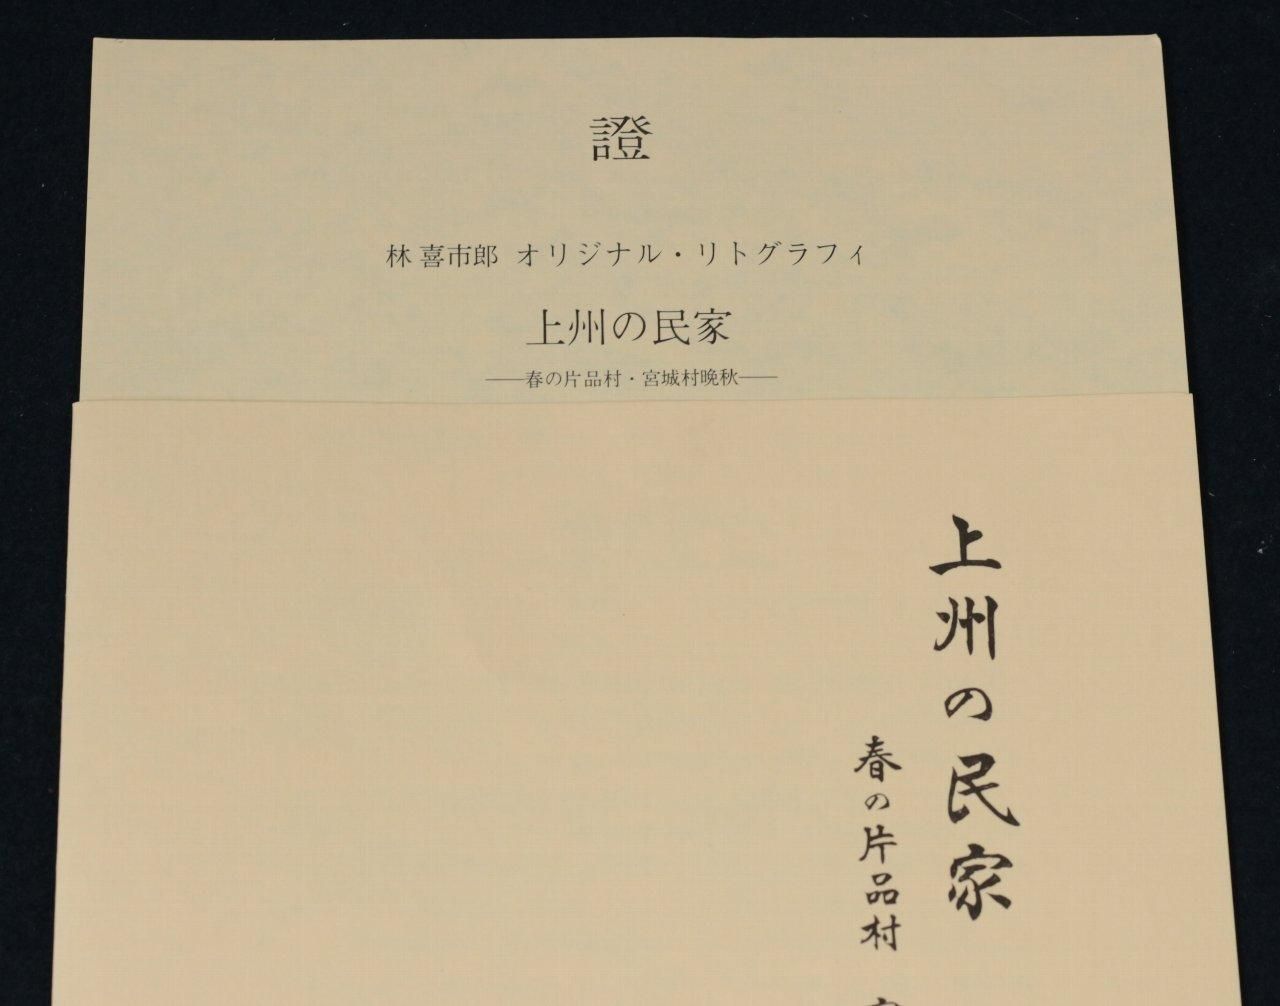 證
林 喜市郎 オリジナル・リトグラフィ
上州の民家
——春の片品村・宮城村晩秋——
上州の民家
春の片品村